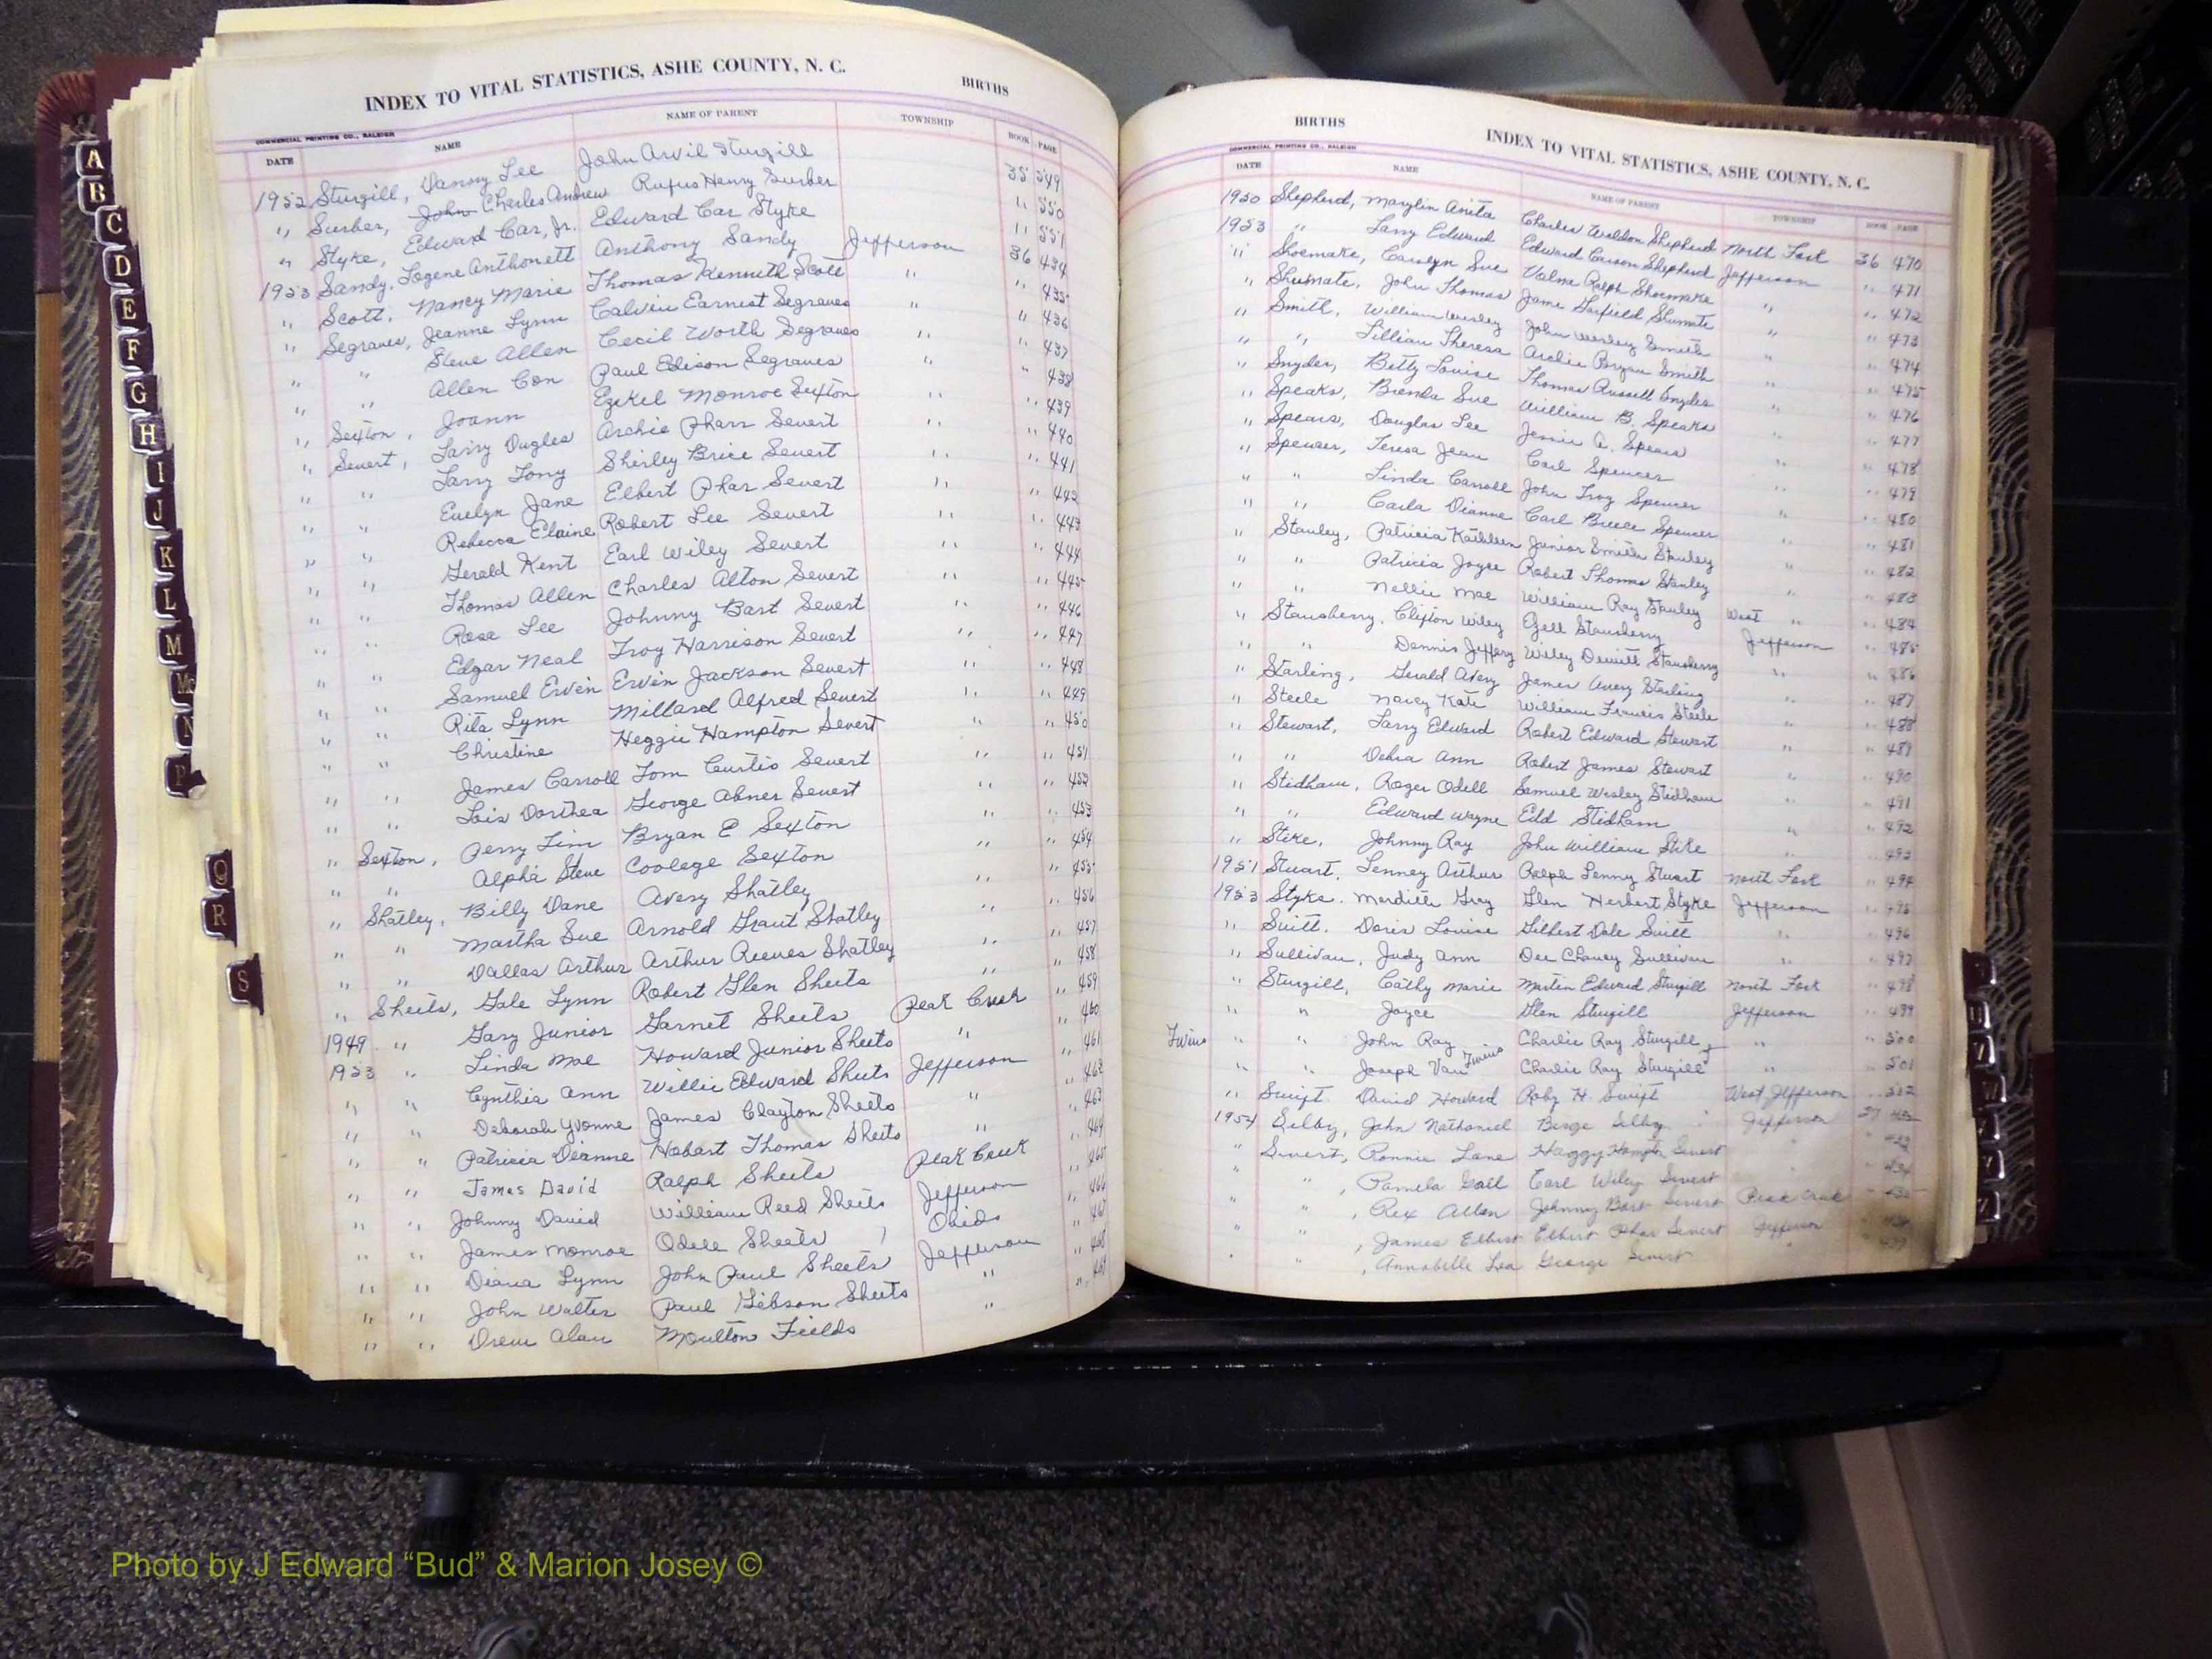 INDEX TO VITAL STATISTICS, ASHE COUNTY, N. C.
BIRTHS
COMMERCIAL PRINTING CO., RALEIGH
DATE NAME NAME OF PARENT TOWNSHIP BOOK PAGE
1952 Sturgill, Danny Lee John Arvil Sturgill 35 549
" Surber, John Charles Andrew Rufus Henry Surber " 550
" Styke, Edward Car, Jr. Edward Car Styke " 551
1953 Sandy, Logene Anthonett Anthony Sandy Jefferson 36 434
" Scott, Nancy Marie Thomas Kenneth Scott " " 435
" Segraves, Jeanne Lynn Calvin Earnest Segraves " " 436
" " Steve Allen Cecil Worth Segraves " " 437
" " Allen Con Paul Edison Segraves " " 438
" Sexton, Joann Ezekel Monroe Sexton " " 439
" Severt, Larry Dugles Archie Pharr Severt " " 440
" " Larry Tony Shirley Brice Severt " " 441
" " Evelyn Jane Elbert Phar Severt " " 442
" " Rebecca Elaine Robert Lee Severt " " 443
" " Gerald Kent Earl Wiley Severt " " 444
" " Thomas Allen Charles Alton Severt " " 445
" " Rosa Lee Johnny Bart Severt " " 446
" " Edgar Neal Troy Harrison Severt " " 447
" " Samuel Ervin Ervin Jackson Severt " " 448
" " Rita Lynn Millard Alfred Severt " " 449
" " Christine Heggie Hampton Severt " " 450
" " James Carroll Tom Curtis Severt " " 451
" " Lois Dorthea George Abner Severt " " 452
" Sexton, Perry Tim Bryan E Sexton " " 453
" " Alpha Steve Coolege Sexton " " 454
" Shatley, Billy Dane Avery Shatley " " 455
" " Martha Sue Arnold Grant Shatley " " 456
" " Dallas Arthur Arthur Reeves Shatley " " 457
" Sheets, Gale Lynn Robert Glen Sheets " " 458
1949 " Gary Junior Garnet Sheets Peak Creek " 459
1953 " Linda Mae Howard Junior Sheets " " 460
" " Cynthia Ann Willie Edward Sheets Jefferson " 461
" " Deborah Yvonne James Clayton Sheets " " 462
" " Patricia Dianne Hobart Thomas Sheets " " 463
" " James David Ralph Sheets Peak Creek " 464
" " Johnny David William Reed Sheets Jefferson " 465
" " James Monroe Odell Sheets Obids " 466
" " Diana Lynn John Paul Sheets Jefferson " 467
" " John Walter Paul Gibson Sheets " " 468
" " Drew Alan Moulton Fields " " 469
BIRTHS
INDEX TO VITAL STATISTICS, ASHE COUNTY, N. C.
COMMERCIAL PRINTING CO., RALEIGH
DATE NAME NAME OF PARENT TOWNSHIP BOOK PAGE
1950 Shepherd, Marylin Anita Charles Weldon Shepherd North Fork 36 470
1953 " Larry Edward Edward Carson Shepherd Jefferson " 471
" Shoemake, Carolyn Sue Velna Ralph Shoemake " " 472
" Shumate, John Thomas Jame Garfield Shumate " " 473
" Smith, William Wesley John Wesley Smith " " 474
" " Lillian Theresa Archie Bryan Smith " " 475
" Snyder, Betty Louise Thomas Russell Snyder " " 476
" Speaks, Brenda Sue William B. Speaks " " 477
" Spears, Douglas Lee Jessie A. Spears " " 478
" Spencer, Teresa Jean Carl Spencer " " 479
" " Linda Carroll John Troy Spencer " " 480
" " Carla Dianne Carl Breece Spencer " " 481
" Stanley, Patricia Kathleen Junior Smith Stanley " " 482
" " Patricia Joyce Robert Thomas Stanley " " 483
" " Nellie Mae William Ray Stanley West " " 484
" Stansberry, Clifton Wiley Ezell Stansberry Jefferson " 485
" " Dennis Jeffery Wiley Dewitt Stansberry " " 486
" Starling, Gerald Avery James Avery Starling " " 487
" Steele Nancy Kate William Francis Steele " " 488
" Stewart, Larry Edward Robert Edward Stewart " " 489
" " Debra Ann Robert James Stewart " " 490
" Stidham, Roger Odell Samuel Wesley Stidham " " 491
" " Edward Wayne Edd Stidham " " 492
" Stike, Johnny Ray John William Stike " " 493
1951 Stuart, Lenney Arthur Ralph Lenny Stuart North Fork " 494
1953 Styke, Merdith Gray Glen Herbert Styke Jefferson " 495
" Suitt, Doris Louise Gilbert Dale Suitt " " 496
" Sullivan, Judy Ann Dee Chaney Sullivan " " 497
" Sturgill, Cathy Marie Martin Edward Sturgill North Fork " 498
" " Joyce Glen Sturgill Jefferson " 499
Twins " " John Ray Charlie Ray Sturgill " " 500
" " Joseph Van Twins Charlie Ray Sturgill " " 501
" Swift, David Howard Roby H. Swift West Jefferson " 502
1954 Selby, John Nathaniel Selby Jefferson 37
" Severt, Ronnie Lane Haggy Hampton Severt "
" " , Pamela Gail Earl Wiley Severt "
" " , Rex Allen Johnny Bart Severt Peak Creek
" " , James Elbert Elbert Phar Severt Jefferson
" " , Annabelle Lea George Severt "
A
B
C
D
E
F
G
H
I
J
K
L
M
Mc
N
P
Q
R
S
Photo by J Edward “Bud” & Marion Josey ©